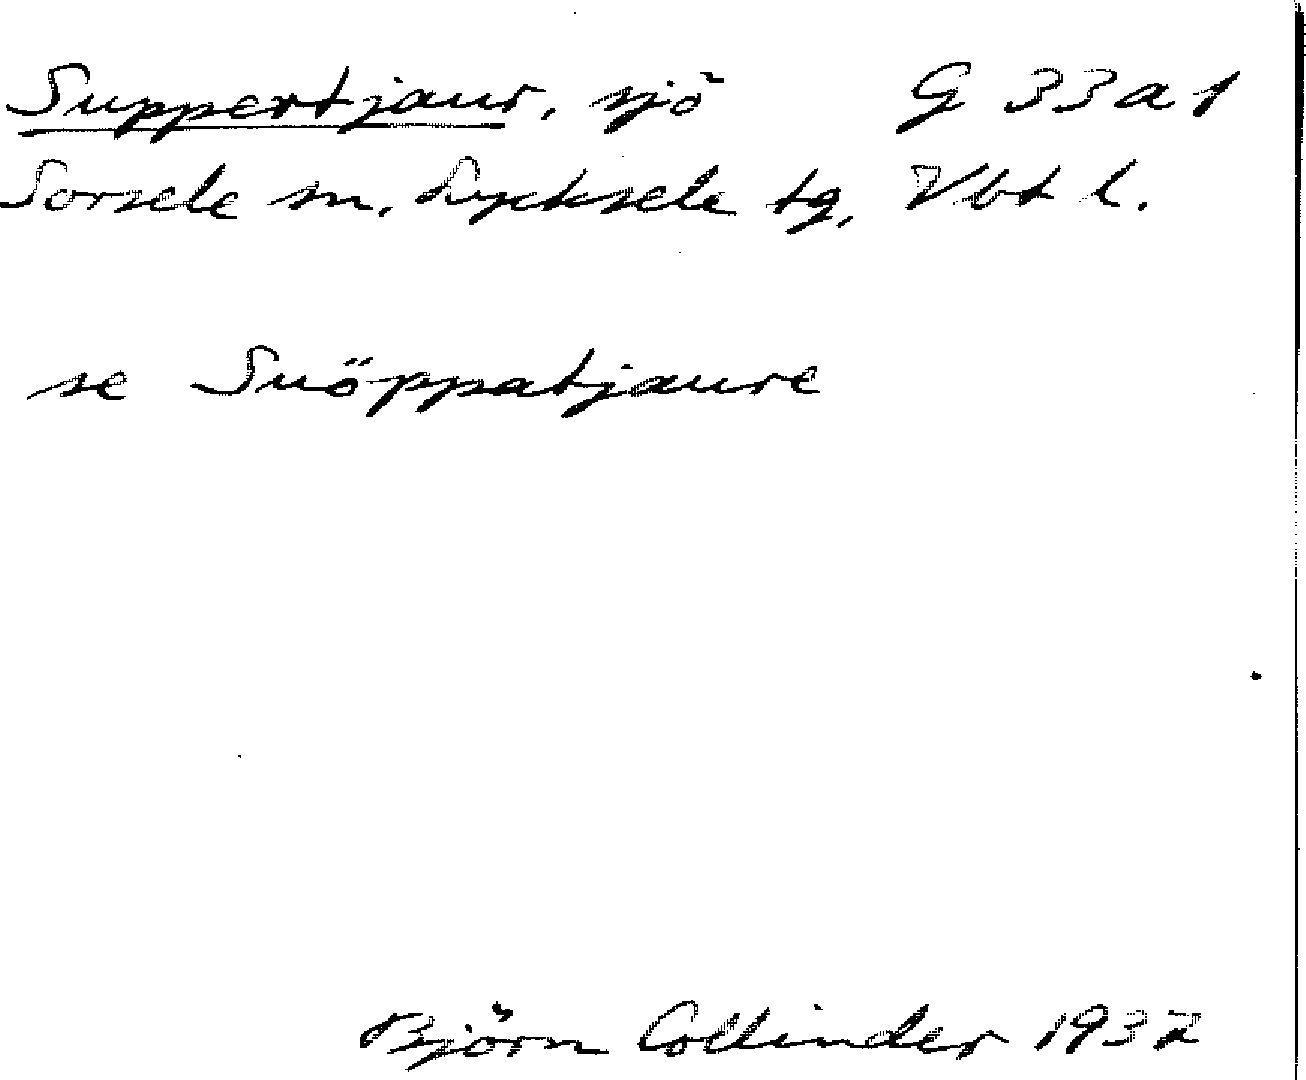 Suppertjaur, sjö G 33a1
Sorsele sn. Lycksele tg, Vbt l.
se Suöppatjaure
Björn Collinder 1937